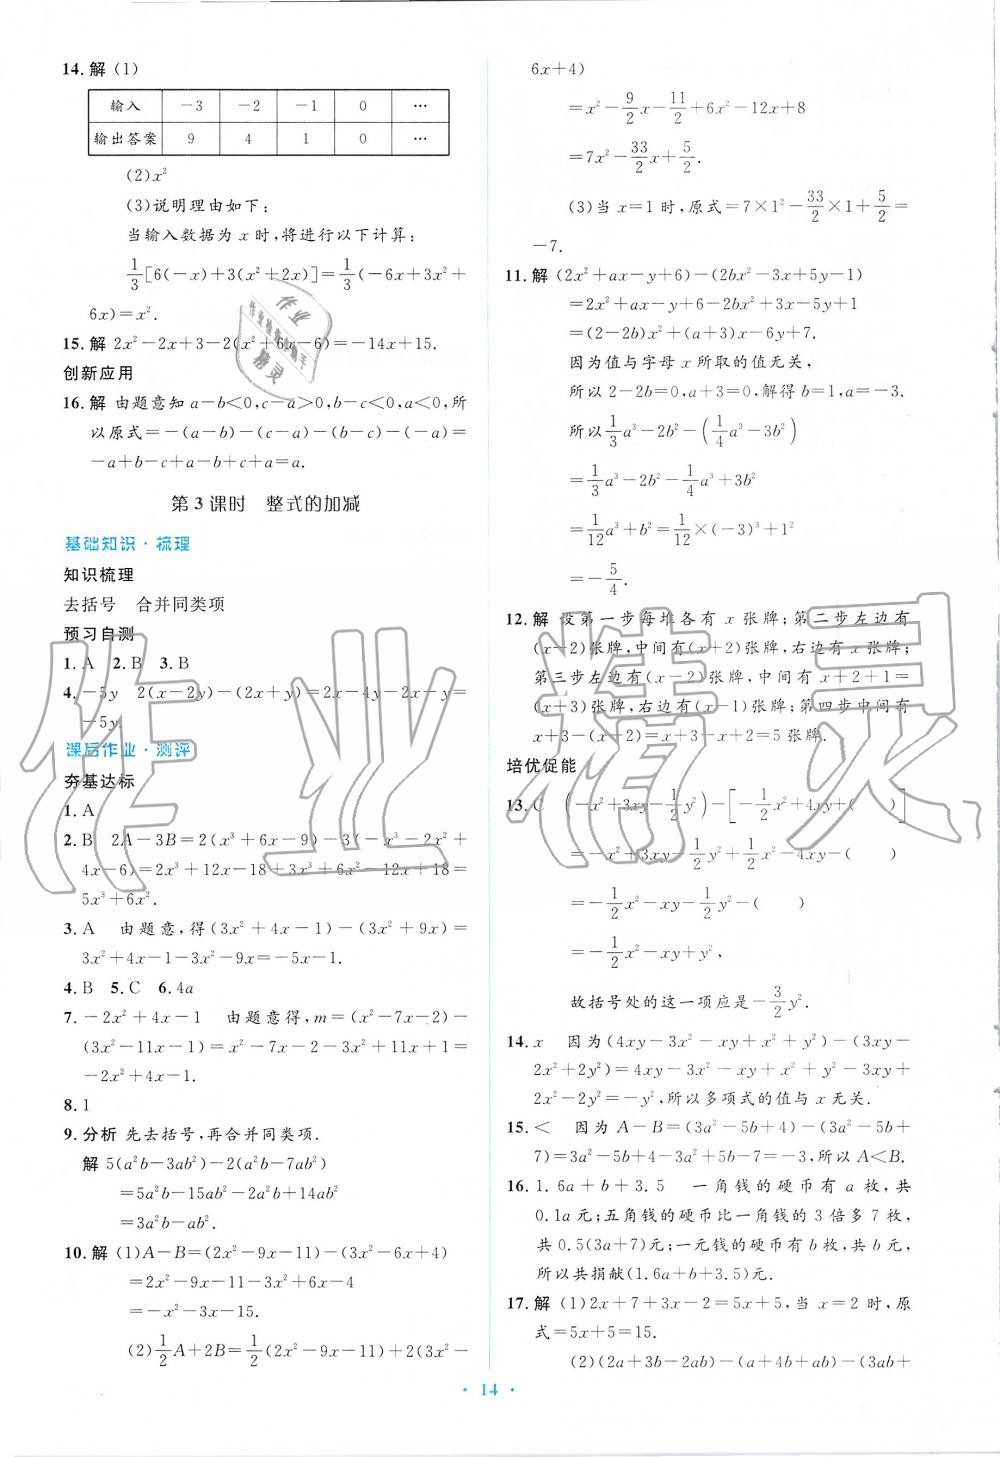 14.解 (1)
输入 －3 －2 －1 0 …
输出答案 9 4 1 0 …
(2)x²
(3)说明理由如下：
当输入数据为 x 时,将进行以下计算：
1/3[6(－x)＋3(x²＋2x)]＝1/3(－6x＋3x²＋
6x)＝x².
15.解 2x²－2x＋3－2(x²＋6x－6)＝－14x＋15.
创新应用
16.解 由题意知 a－b＜0,c－a＞0,b－c＜0,a＜0,所
以原式＝－(a－b)－(c－a)－(b－c)－(－a)＝
－a＋b－c＋a－b＋c＋a＝a.
第 3 课时 整式的加减
基础知识·梳理
知识梳理
去括号 合并同类项
预习自测
1.A 2.B 3.B
4.－5y 2(x－2y)－(2x＋y)＝2x－4y－2x－y＝
－5y.
课后作业·测评
夯基达标
1.A
2.B 2A－3B＝2(x³＋6x－9)－3(－x³－2x²＋
4x－6)＝2x³＋12x－18＋3x³＋6x²－12x＋18＝
5x³＋6x².
3.A 由题意,得(3x²＋4x－1)－(3x²＋9x)＝
3x²＋4x－1－3x²－9x＝－5x－1.
4.B 5.C 6.4a
7.－2x²＋4x－1 由题意得,m＝(x²－7x－2)－
(3x²－11x－1)＝x²－7x－2－3x²＋11x＋1＝
－2x²＋4x－1.
8.1
9.分析 先去括号,再合并同类项.
解 5(a²b－3ab²)－2(a²b－7ab²)
＝5a²b－15ab²－2a²b＋14ab²
＝3a²b－ab².
10.解 (1)A－B＝(2x²－9x－11)－(3x²－6x＋4)
＝2x²－9x－11－3x²＋6x－4
＝－x²－3x－15.
(2)1/2A＋2B＝1/2(2x²－9x－11)＋2(3x²－
6x＋4)
＝x²－9/2x－11/2＋6x²－12x＋8
＝7x²－33/2x＋5/2.
(3)当 x＝1 时,原式＝7×1²－33/2×1＋5/2＝
－7.
11.解 (2x²＋ax－y＋6)－(2bx²－3x＋5y－1)
＝2x²＋ax－y＋6－2bx²＋3x－5y＋1
＝(2－2b)x²＋(a＋3)x－6y＋7.
因为值与字母 x 所取的值无关,
所以 2－2b＝0,a＋3＝0,解得 b＝1,a＝－3.
所以1/3a³－2b²－(1/4a³－3b²)
＝1/3a³－2b²－1/4a³＋3b²
＝1/12a³＋b²＝1/12×(－3)³＋1²
＝－5/4.
12.解 设第一步每堆各有 x 张牌；第二步左边有
(x－2)张牌,中间有(x＋2)张牌,右边有 x 张牌；
第三步左边有(x－2)张牌,中间有 x＋2＋1＝
(x＋3)张牌,右边有(x－1)张牌；第四步中间有
x＋3－(x－2)＝x＋3－x＋2＝5 张牌.
培优促能
13.C (－x²＋3xy－1/2y²)－[－1/2x²＋4xy＋( )]
＝－x²＋3xy－1/2y²＋1/2x²－4xy－( )
＝－1/2x²－xy－1/2y²－( )
＝－1/2x²－xy＋y²,
故括号处的这一项应是－3/2y².
14.x 因为(4xy－3x²－xy＋x²＋y²)－(3xy－
2x²＋2y²)＝4xy－3x²－xy＋x²＋y²－3xy＋
2x²－2y²＝－y²,所以多项式的值与 x 无关.
15.＜ 因为 A－B＝(3a²－5b＋4)－(3a²－5b＋
7)＝3a²－5b＋4－3a²＋5b－7＝－3,所以A＜B.
16.1.6a＋b＋3.5 一角钱的硬币有 a 枚,共
0.1a元；五角钱的硬币比一角钱的 3 倍多 7 枚,
共 0.5(3a＋7)元；一元钱的硬币有 b 枚,共 b元,
所以共捐献(1.6a＋b＋3.5)元.
17.解 (1)2x＋7＋3x－2＝5x＋5,当 x＝2 时,原
式＝5x＋5＝15.
(2)(2a＋3b－2ab)－(a＋4b＋ab)－(3ab＋
· 14 ·
作业精灵